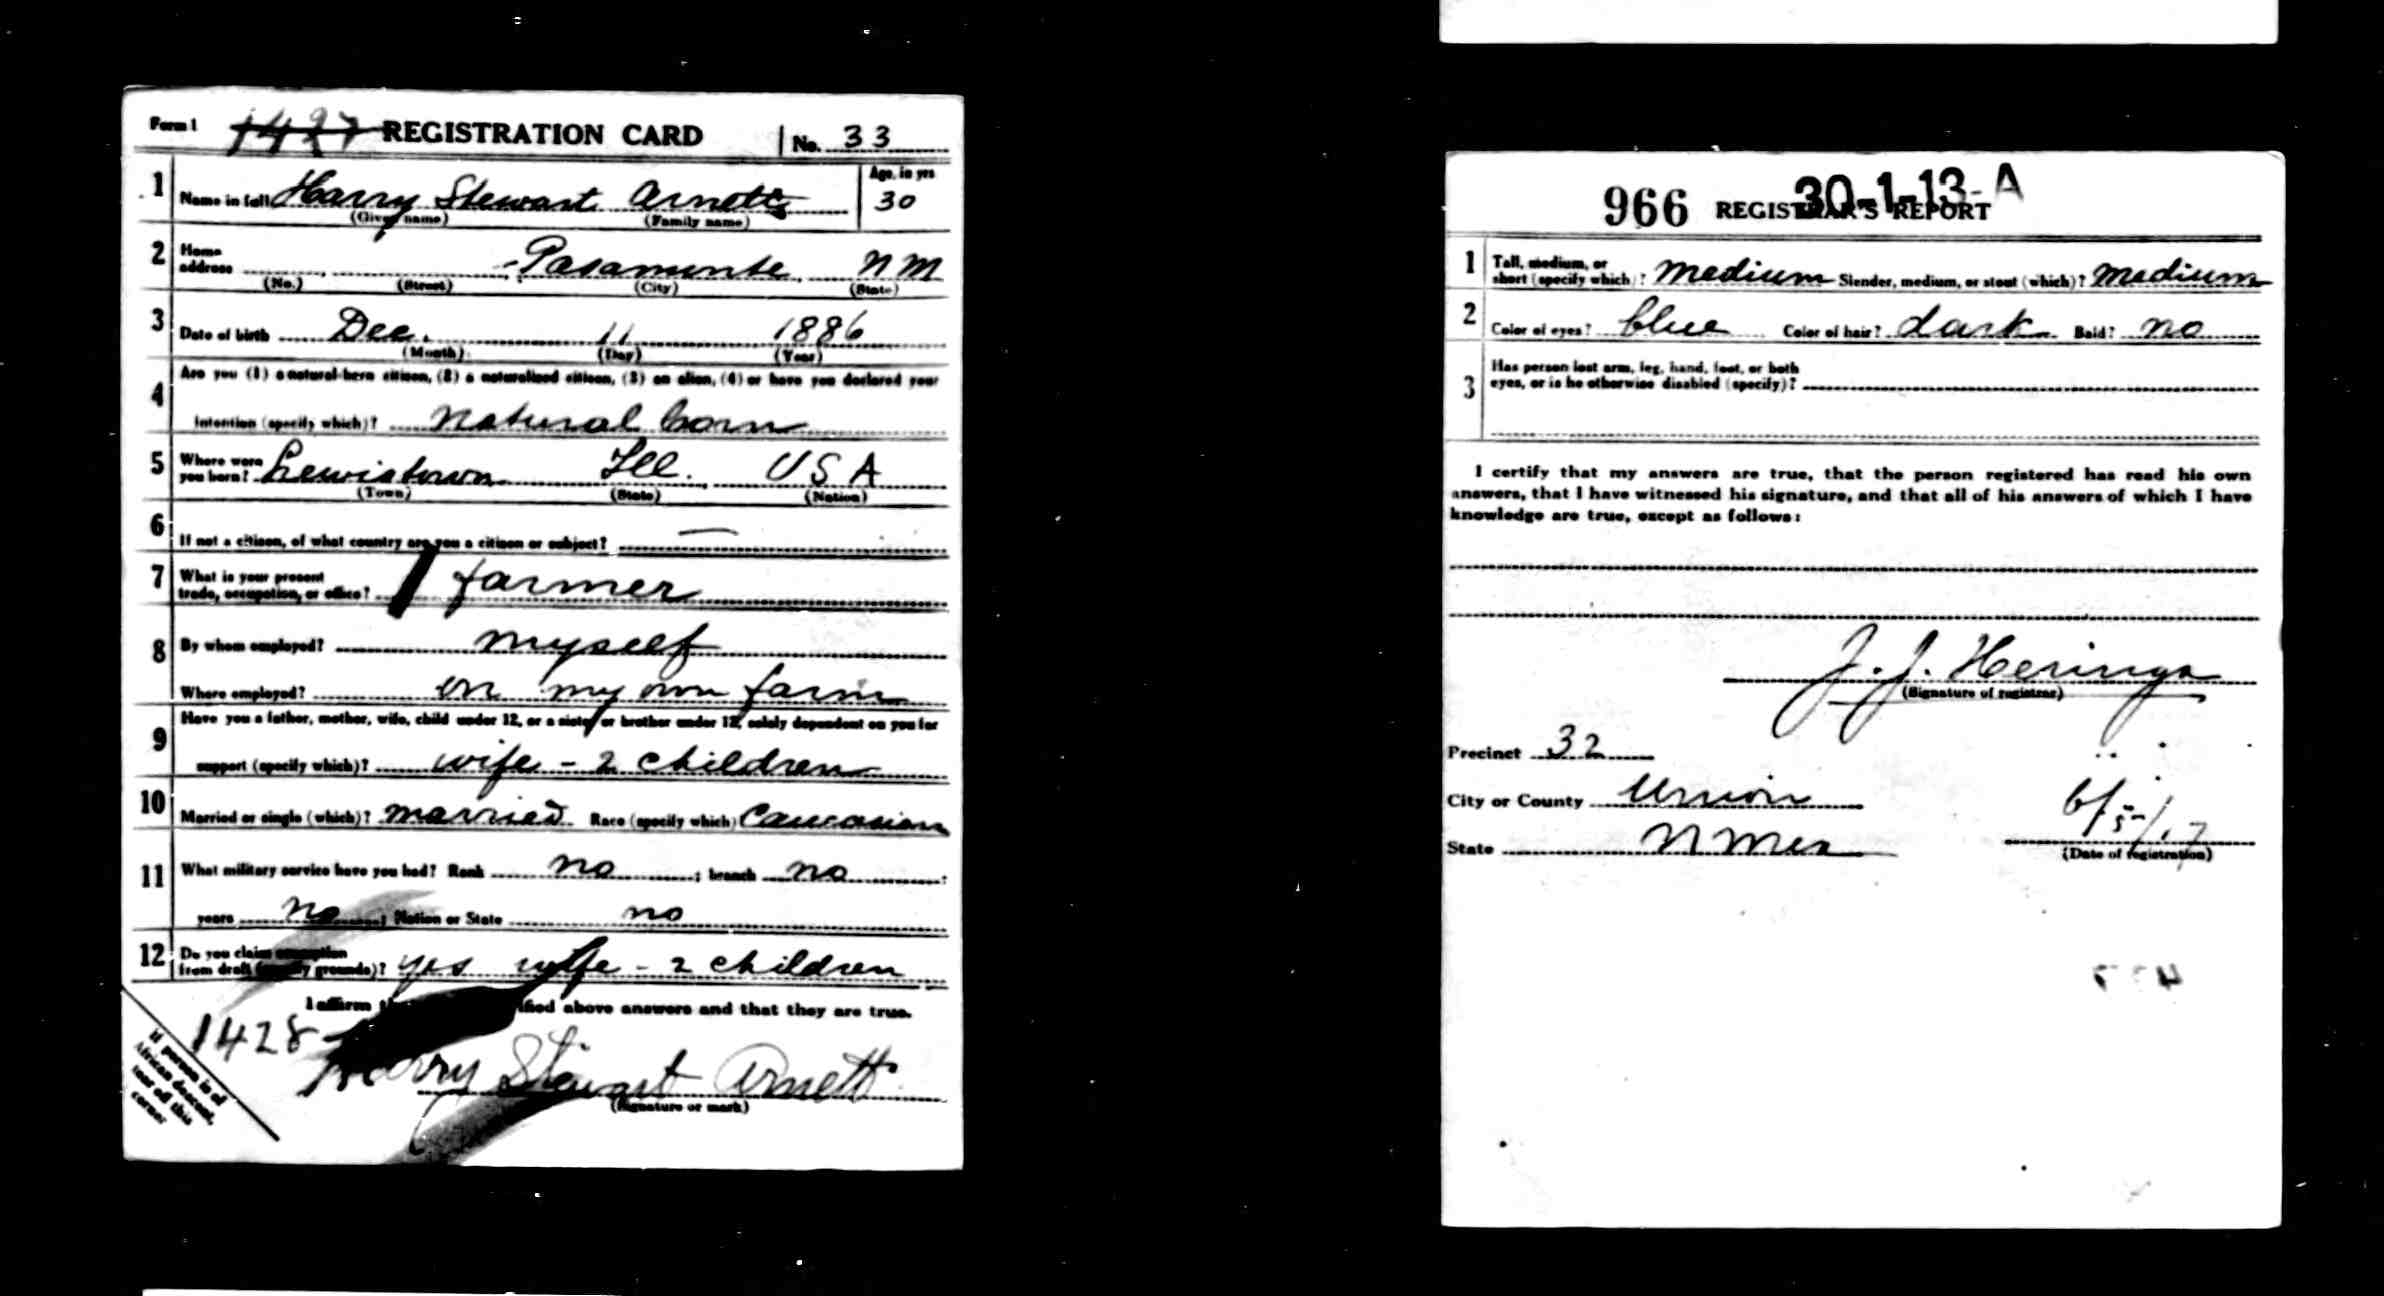 Form 1 1427 REGISTRATION CARD No. 33
1 Name in full Harry Stewart Arnett Age, in yrs
30
(Given name) (Family name)
2 Home
address Pasamonte N M
(No.) (Street) (City) (State)
3 Date of birth Dec. 11 1886
(Month) (Day) (Year)
4 Are you (1) a natural-born citizen, (2) a naturalized citizen, (3) an alien, (4) or have you declared your
intention (specify which)? Natural born
5 Where were
you born? Lewistown Ill. U S A
(Town) (State) (Nation)
6 If not a citizen, of what country are you a citizen or subject? —
7 What is your present
trade, occupation, or office? farmer
8 By whom employed? myself
Where employed? on my own farm
9 Have you a father, mother, wife, child under 12, or a sister or brother under 12, solely dependent on you for
support (specify which)? wife - 2 children
10 Married or single (which)? married Race (specify which) Caucasian
11 What military service have you had? Rank no ; branch no ;
years no ; Nation or State no
12 Do you claim exemption
from draft (specify grounds)? yes wife - 2 children
I affirm fied above answers and that they are true.
1428
Harry Stewart Arnett
(Signature or mark)
If person is of
African descent,
tear off this
corner
966 REGISTRAR'S REPORT 30-1-13-A
1 Tall, medium, or
short (specify which)? medium Slender, medium, or stout (which)? medium
2 Color of eyes? blue Color of hair? dark Bald? no
3 Has person lost arm, leg, hand, foot, or both
eyes, or is he otherwise disabled (specify)?
I certify that my answers are true, that the person registered has read his own
answers, that I have witnessed his signature, and that all of his answers of which I have
knowledge are true, except as follows:
J. J. Heringa
(Signature of registrar)
Precinct 32
City or County Union
State N Mex
6/5/17
(Date of registration)